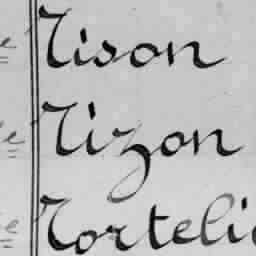 Tison
Tizon
Tortelie